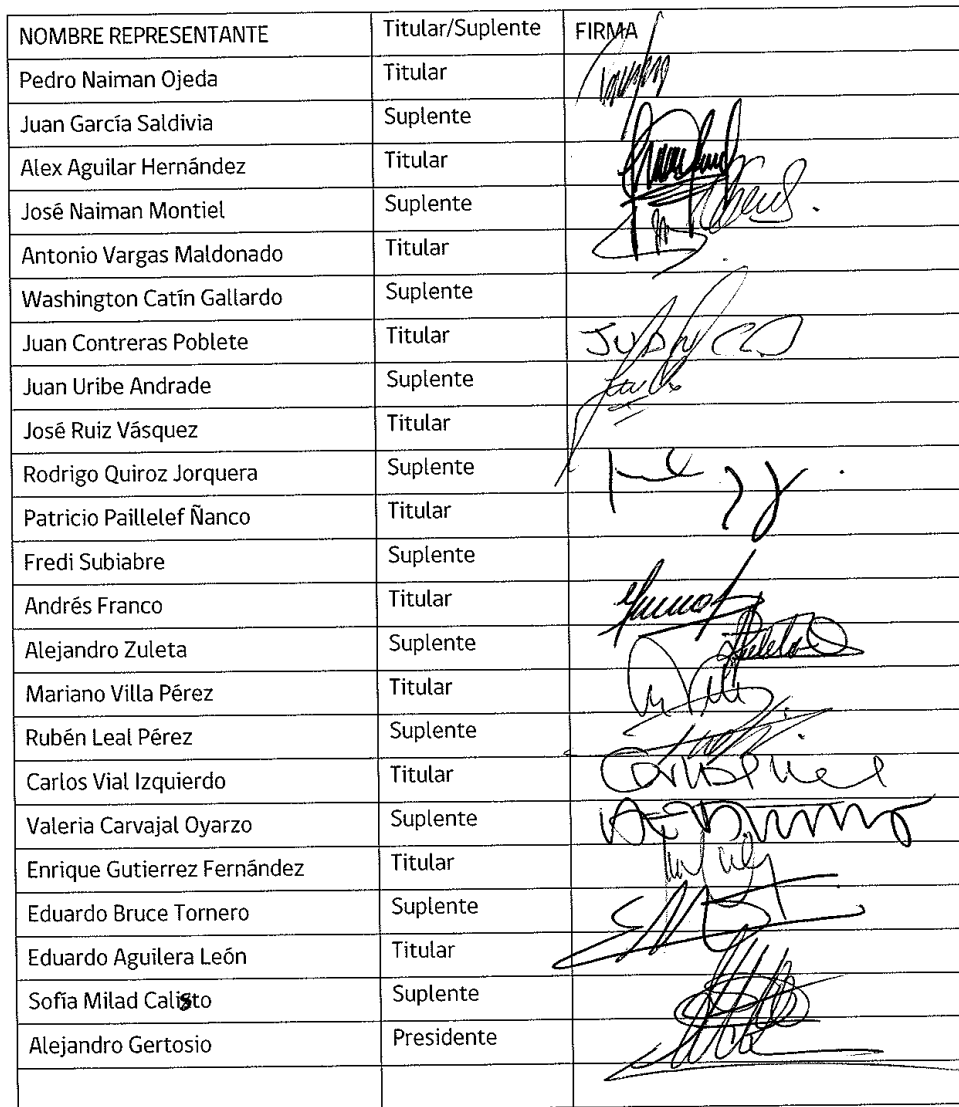 NOMBRE REPRESENTANTE Titular/Suplente FIRMA
Pedro Naiman Ojeda Titular
Juan García Saldivia Suplente
Alex Aguilar Hernández Titular
José Naiman Montiel Suplente
Antonio Vargas Maldonado Titular
Washington Catín Gallardo Suplente
Juan Contreras Poblete Titular
Juan Uribe Andrade Suplente
José Ruiz Vásquez Titular
Rodrigo Quiroz Jorquera Suplente
Patricio Paillelef Ñanco Titular
Fredi Subiabre Suplente
Andrés Franco Titular
Alejandro Zuleta Suplente
Mariano Villa Pérez Titular
Rubén Leal Pérez Suplente
Carlos Vial Izquierdo Titular
Valeria Carvajal Oyarzo Suplente
Enrique Gutierrez Fernández Titular
Eduardo Bruce Tornero Suplente
Eduardo Aguilera León Titular
Sofía Milad Calisto Suplente
Alejandro Gertosio Presidente